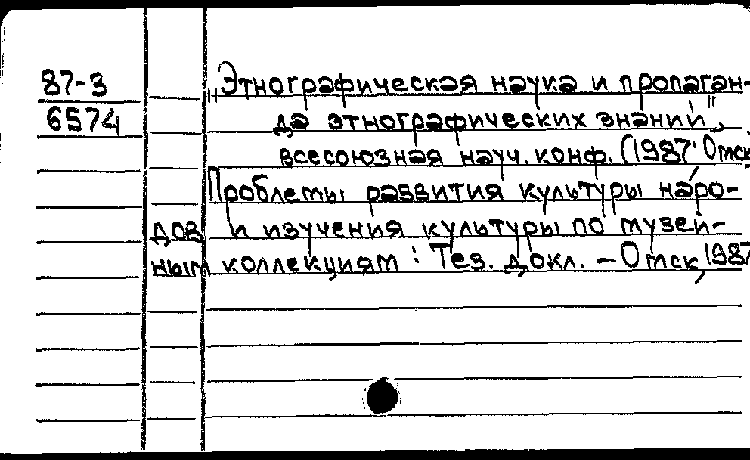 87-3
6574
„Этнографическая наука и пропаган-
да этнографических знаний",
всесоюзная науч. конф. (1987 Омск
Проблемы развития культуры наро-
дов и изучения культуры по музей-
ным коллекциям : Тез. докл. – Омск, 1987